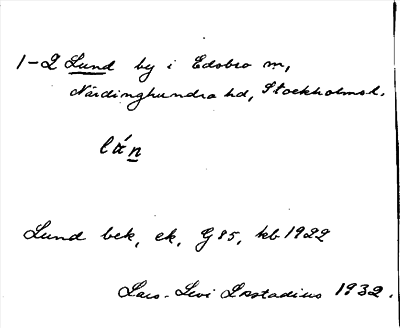 1-2 Lund by i Edsbro sn,
Närdinghundra hd, Stockholms l.
lán
Lund bek, ek, G 85, kb 1922
Lars-Levi Læstadius 1932.